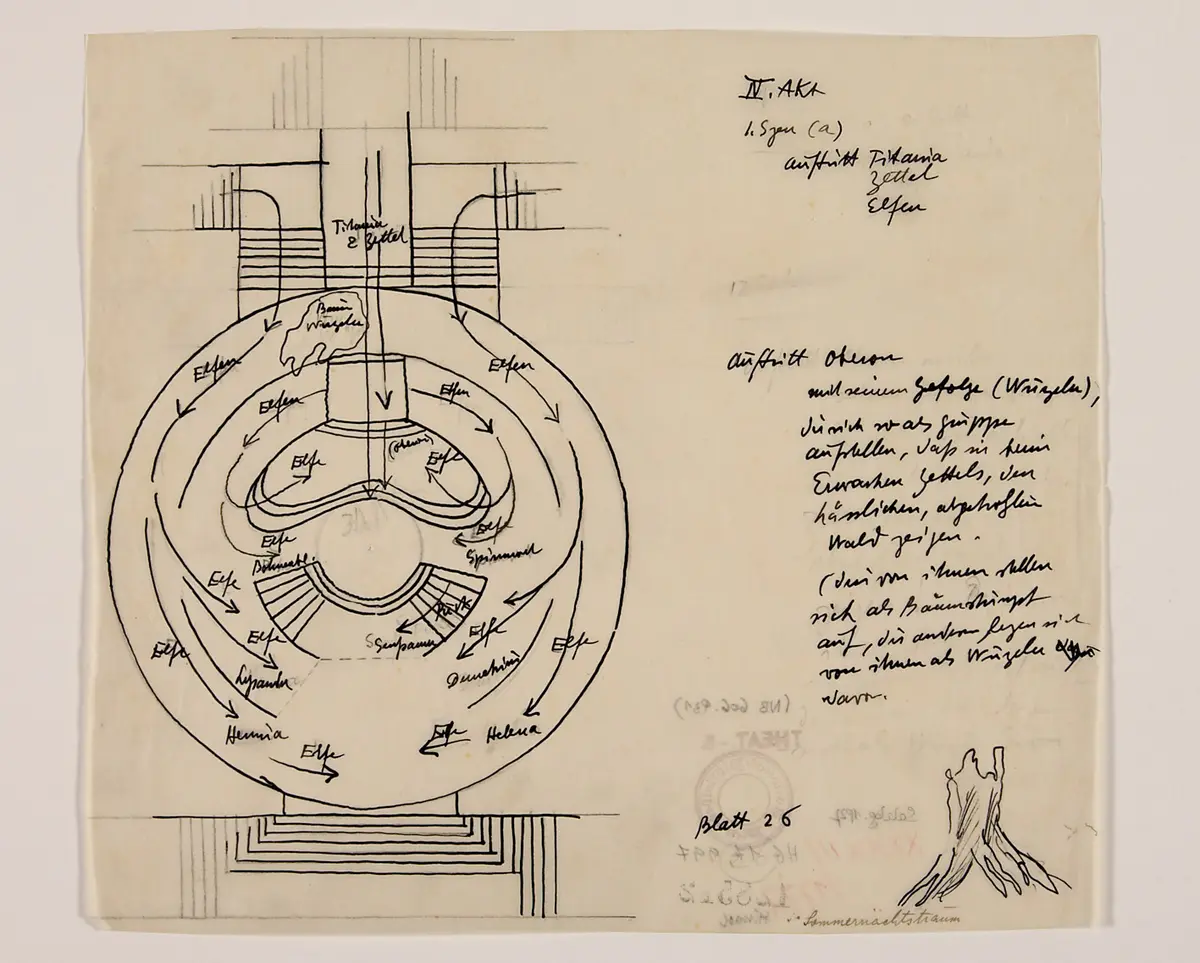 IV. Akt
1. Szen (a)
Auftritt Titania
Zettel
Elfen
Titania
& Zettel
Baum
Wurzeln
Elfen
Elfen
Elfen
Elfen
Elfe
(Oberon)
Elfe
Elfe
Elfe
Spinnweb
Elfe
Puck
Elfe
Elfe
Senfsamen
Elfe
Elfe
Lysander
Demetrius
Hermia
Elfe
Helena
Elfe
Auftritt Oberon
mit seinem Gefolge (Wurzeln),
die sich so als Gruppe
aufstellen, daß sie beim
Erwachen Zettels, den
hässlichen, abgeholzten
Wald zeigen.
(Drei von ihnen stellen
sich als Baumstumpf
auf, die andern legen sich
von ihnen als Wurzeln
davor.
(NB 606.931)
THEAT-
Blatt 26
Sommernachtstraum